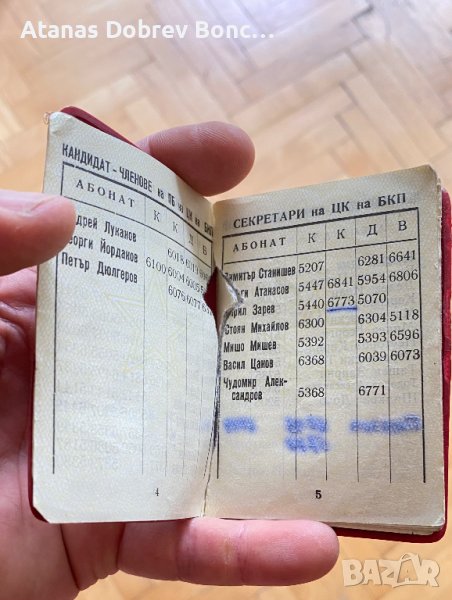 Atanas Dobrev Bonc...
КАНДИДАТ-ЧЛЕНОВЕ на ПБ на ЦК на БКП
АБОНАТ К К Д В
дрей Луканов
еорги Йорданов 6100
Петър Дюлгеров
4
СЕКРЕТАРИ на ЦК на БКП
АБОНАТ К К Д В
Димитър Станишев 5207 6281 6641
ги Атанасов 5447 6841 5954 6806
ирил Зарев 5440 6773 5070
Стоян Михайлов 6300 6304 5118
Мишо Мишев 5392 5393 6596
Васил Цанов 6368 6039 6073
Чудомир Алек-
сандров 5368 6771
5
BAZAR